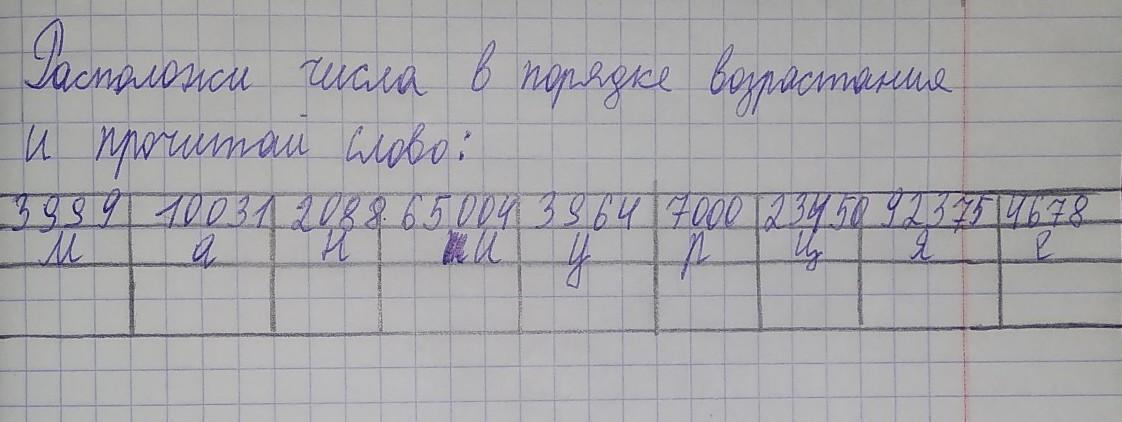 Расположи числа в порядке возрастания
и прочитай слово:
3999 10031 2088 65004 3964 7000 23450 92375 4678
м а н и у р ц я е